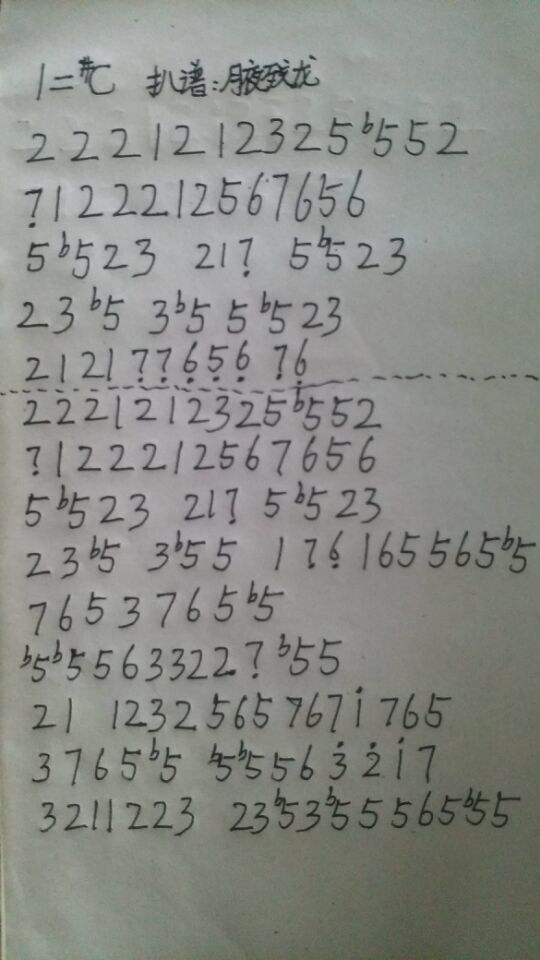 1=#C 扒谱:月夜残龙
2 2 2 1 2 1 2 3 2 5 b5 5 2
7̣ 1 2 2 2 1 2 5 6 7 6 5 6
5 b5 2 3 2 1 7̣ 5 b5 2 3
2 3 b5 3 b5 5 b5 2 3
2 1 2 1 7̣ 7̣ 6̣ 5̣ 6̣ 7̣ 6̣
2 2 2 1 2 1 2 3 2 5 b5 5 2
7̣ 1 2 2 2 1 2 5 6 7 6 5 6
5 b5 2 3 2 1 7̣ 5 b5 2 3
2 3 b5 3 b5 5 1 7̣ 6̣ 1 6 5 5 6 5 b5
7 6 5 3 7 6 5 b5
b5 b5 5 6 3 3 2 2 7̣ b5 5
2 1 1 2 3 2 5 6 5 7 6 7 1̇ 7 6 5
3 7 6 5 b5 b5 b5 5 6 3̇ 2̇ 1̇ 7
3 2 1 1 2 2 3 2 3 b5 3 b5 5 5 6 5 b5 5